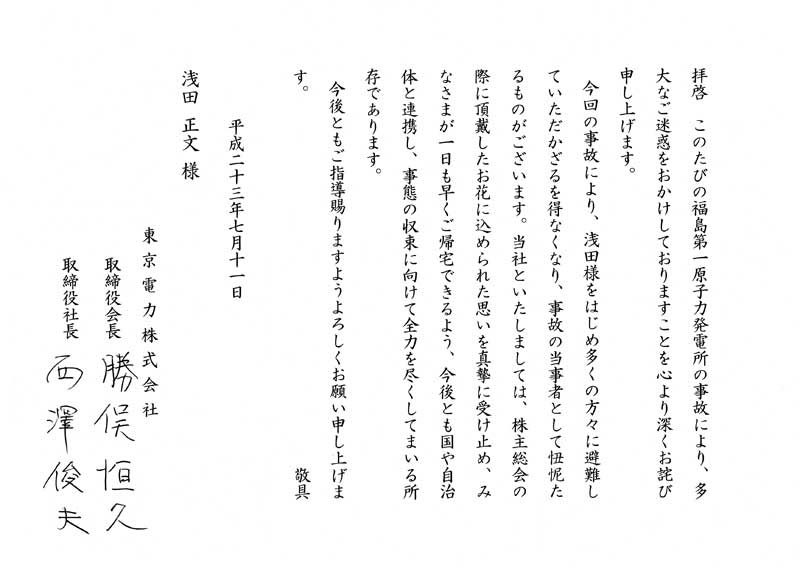 拝啓　このたびの福島第一原子力発電所の事故により、多
大なご迷惑をおかけしておりますことを心より深くお詫び
申し上げます。
　今回の事故により、浅田様をはじめ多くの方々に避難し
ていただかざるを得なくなり、事故の当事者として忸怩た
るものがございます。当社といたしましては、株主総会の
際に頂戴したお花に込められた思いを真摯に受け止め、み
なさまが一日も早くご帰宅できるよう、今後とも国や自治
体と連携し、事態の収束に向けて全力を尽くしてまいる所
存であります。
　今後ともご指導賜りますようよろしくお願い申し上げま
す。
敬具
平成二十三年七月十一日
浅田　正文　様
東京電力株式会社
取締役会長　勝俣恒久
取締役社長　西澤俊夫